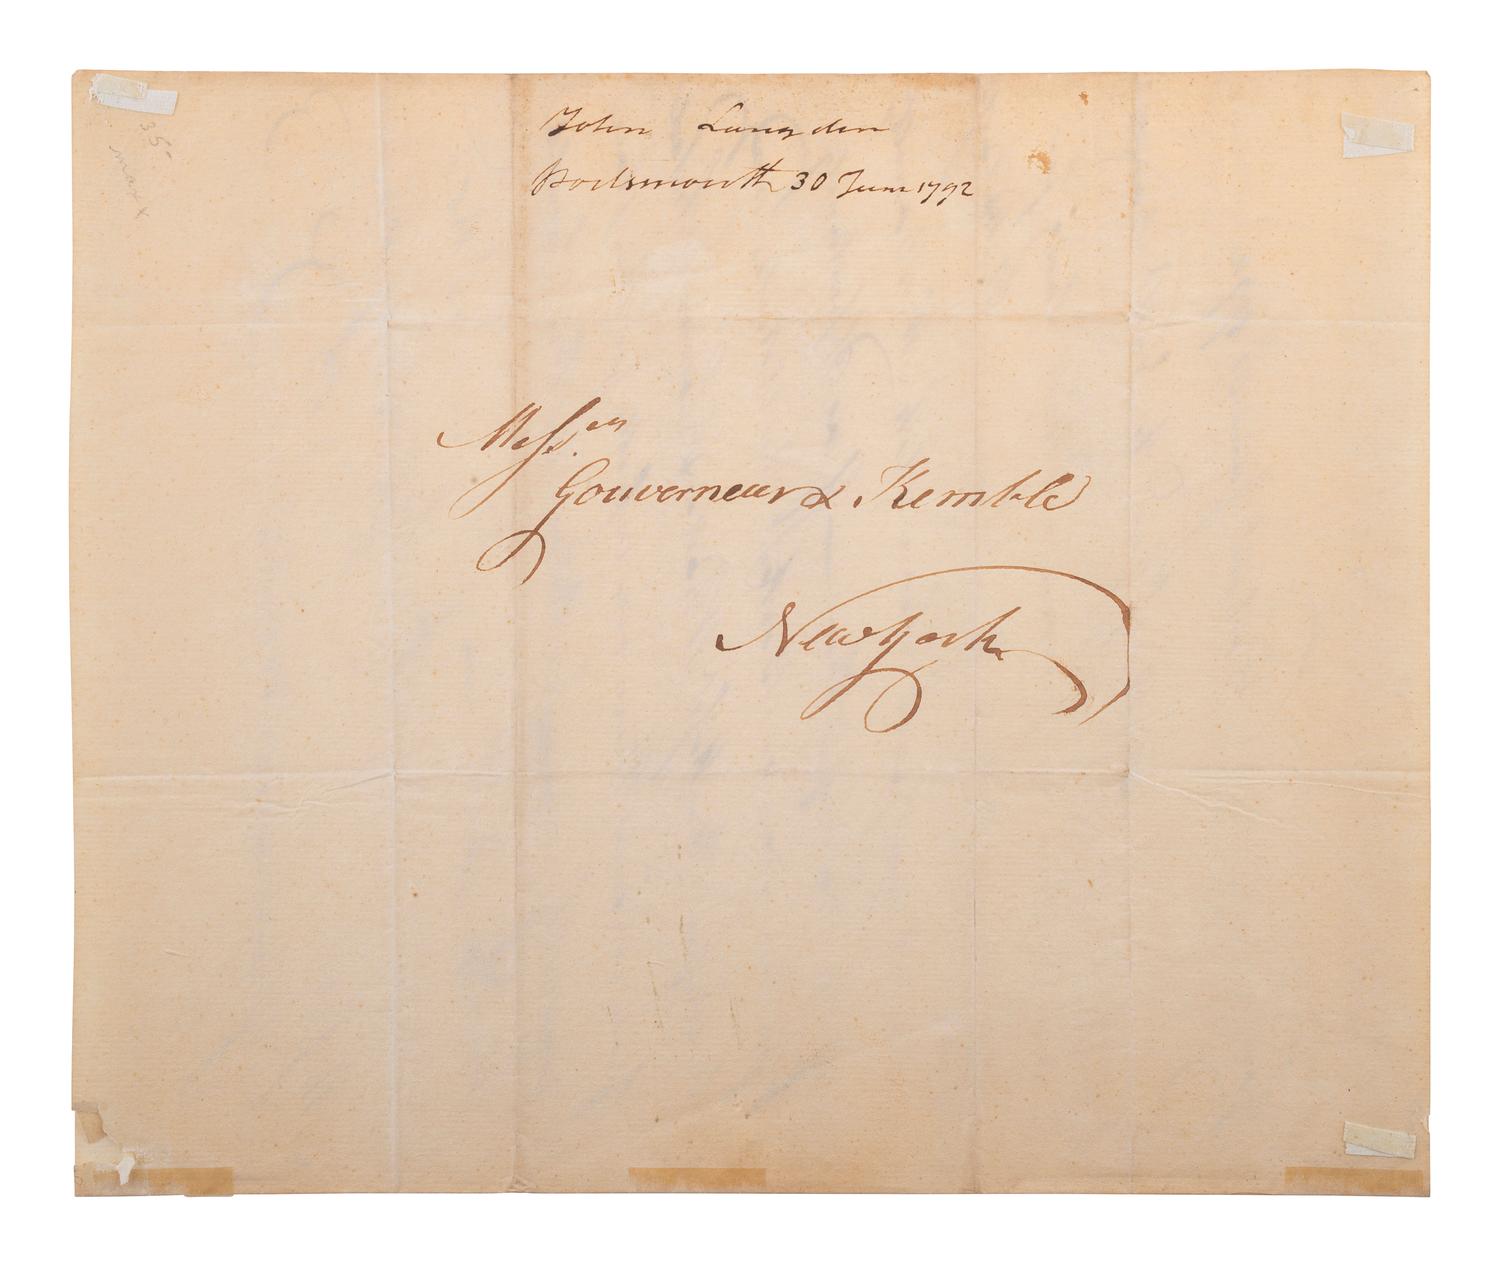 John Langdon
Portsmouth 30 June 1792
Mess.rs
Gouverneur & Kemble
New York